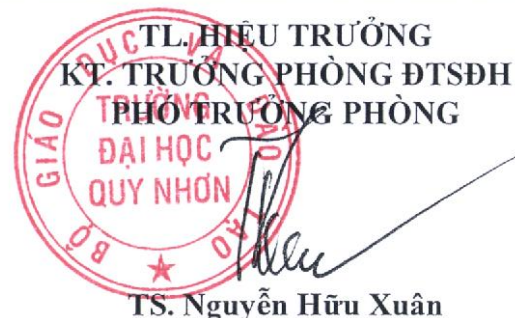 TL. HIỆU TRƯỞNG
KT. TRƯỞNG PHÒNG ĐTSĐH
PHÓ TRƯỞNG PHÒNG
BỘ GIÁO DỤC VÀ ĐÀO TẠO
TRƯỜNG
ĐẠI HỌC
QUY NHƠN
TS. Nguyễn Hữu Xuân